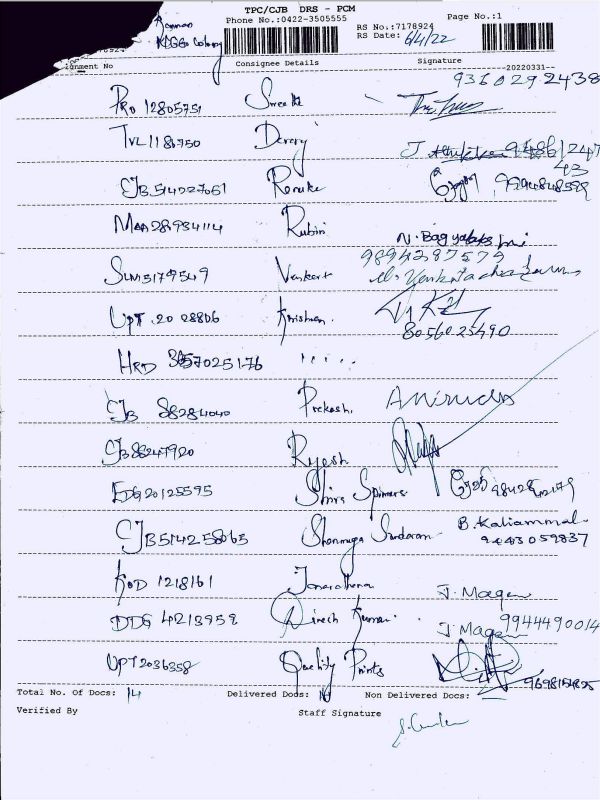 TPC/CJB DRS - PCM
Phone No.:0422-3505555
RS No.:7178924 Page No.:1
RS Date: 6/4/22
Raman
KGGo Colony
ignment No Consignee Details Signature --20220331--
9360292438
PRD 12805751
TVL1181750 9486124743
CJB514027051 Renuka 9994848599
MAA 28934114 Rubini N. Bagyalakshmi
9894287579
SLM3179549 Venkat M. Venkatachalam
UPT 2028806 Krishnan
8056025490
HRD 3657025176 " " "
CJB 88284040 Prakash. Anirudh
CJB88247920 Rajesh
EDG20125595 Shiva Spinners
CJB514258065 Shanmuga Sundaram B. Kaliammal
9443059837
KOD 1218161 Janardhana J. Magen
DDG 4213959 Dinesh Kumar J. Magen 9944490014
UPT2036358 Quality Prints
Total No. Of Docs: 14 Delivered Docs: 14 Non Delivered Docs:
Verified By Staff Signature